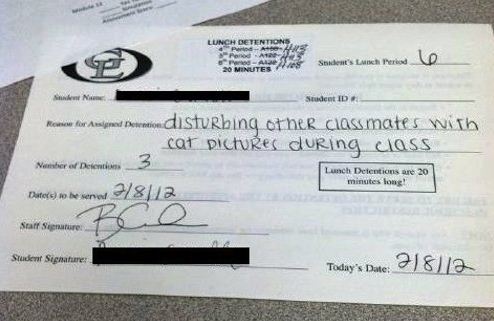 LUNCH DETENTIONS
4th Period –
5th Period –
6th Period –
20 MINUTES
Student's Lunch Period 6
Student Name:
Student ID #:
Reason for Assigned Detention: disturbing other classmates with
cat pictures during class
Number of Detentions 3
Lunch Detentions are 20
minutes long!
Date(s) to be served 2/8/12
Staff Signature:
Student Signature:
Today's Date: 2/8/12